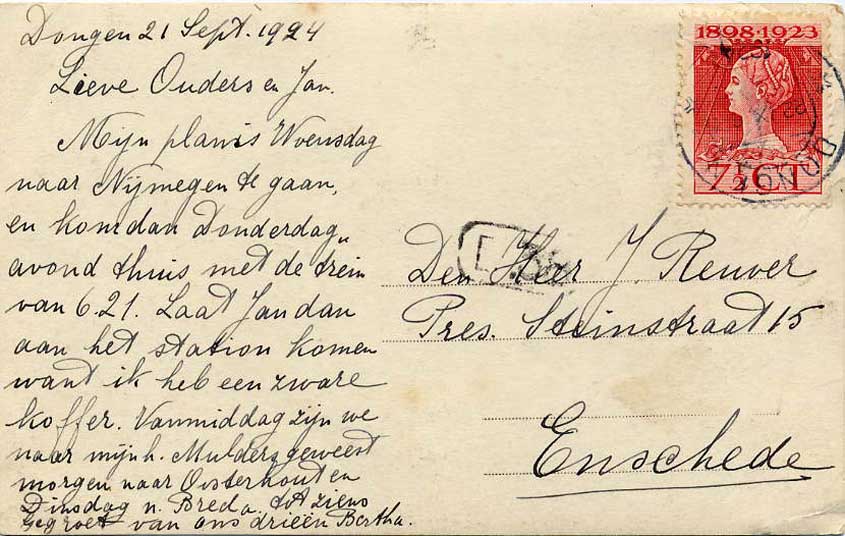 Dongen 21 Sept. 1924
Lieve Ouders en Jan.
Mijn plan is Woensdag
naar Nijmegen te gaan,
en kom dan Donderdag„
avond thuis met de trein
van 6.21. Laat Jan dan
aan het station komen
want ik heb een zware
koffer. Vanmiddag zijn we
naar mijnh. Mulders geweest
morgen naar Oosterhout en
Dinsdag n. Breda. tot ziens
Gegroet van ons drieën Bertha.
1898·1923
7½ CT
DONGEN
Den Heer J Reuver
Pres. Steinstraat 15
Enschede